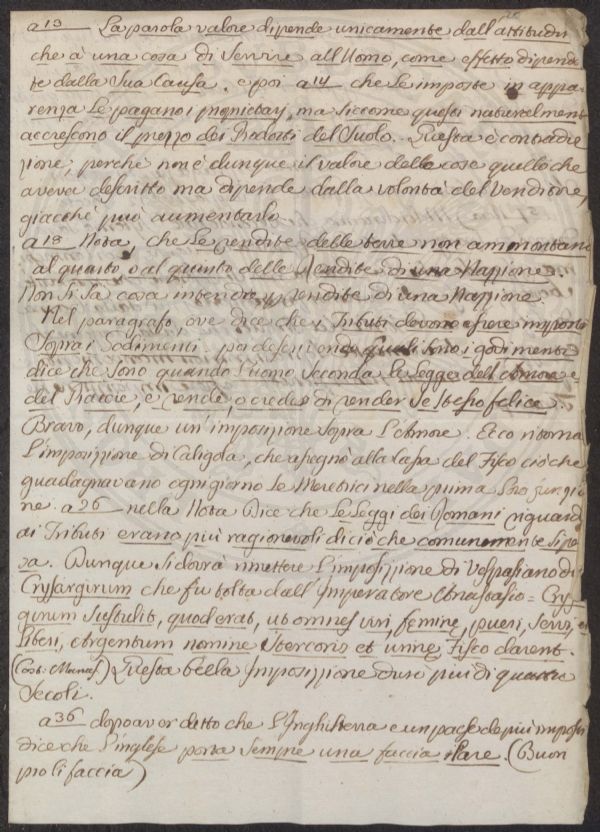 a 13 La parola valore dipende unicamente dall'attitudin
che à una cosa di servire all'Uomo, come effetto dipende
te dalla sua causa. e poi a 14 che le imposte in appa-
renza le pagano i proprietarj, ma siccome questi naturalmente
accrescono il prezzo dei Prodotti del Suolo. Questa è contradi-
zione, perche non è dunque il valore delle cose quello che
aveva descritto ma dipende dalla volontà del Venditore,
giacchè può aumentarlo
a 18 Nota, che le rendite delle terre non ammontano
al quarto o al quinto delle Rendite di una Nazione.
Non si sa cosa intendere p rendite di una Nazione.
Nel paragrafo, ove dice che i Tributi devono essere imposti
Sopra i Godimenti, poi quali sono i godimenti
dice che sono quando l'uomo seconda le Legge dell'Amore e
del Piacere, e rende, o crede di render se stesso felice.
Bravo, dunque un'imposizione sopra l'Amore. Ecco ritorna
l'imposizione di Caligola, che assegnò alla Cassa del Fisco ciò che
guadagnavano ogni giorno le Meretrici nella prima loro
ne. a 26 nella Nota Dice che le Leggi dei Romani riguard
ai Tributi erano più ragionevoli di ciò che comunemente si pe
sa. Dunque si dovrà rimettere l'imposizione di Vespasiano di
Crysargirum che fu tolta dall'Imperatore Anastasio = Crys
girum sustulit, quod erat, ut omnes viri, femine, pueri, servi, et
liberi, Argentum nomine stercoris et urine Fisco darent.
Questa bella Imposizione durò più di quattro
secoli.
a 36 dopo aver detto che l'Inghilterra è un paese de più imposti
dice che l'inglese porta sempre una faccia ilare. (Buon
pro li faccia)